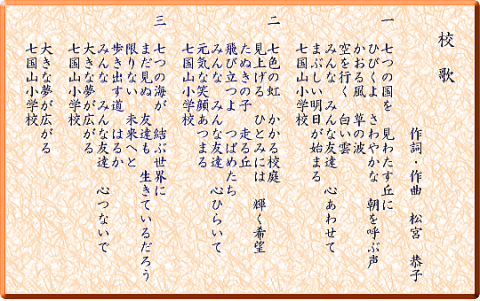 校歌
作詞・作曲 松宮 恭子
一 七つの国を 見わたす丘に
ひびくよ さわやかな 朝を呼ぶ声
かおる風 草の波
空を行く 白い雲
みんな みんな友達 心あわせて
まぶしい明日が始まる
七国山小学校
二 七色の虹 かかる校庭
見上げる ひとみには 輝く希望
たぬきの子 走る丘
飛び立つよ つばめたち
みんな みんな友達 心ひらいて
元気な笑顔あつまる
七国山小学校
三 七つの海が 結ぶ世界に
まだ見ぬ 友達も 生きているだろう
限りない 未来へと
歩き出す道 はるか
みんな みんな友達 心つないで
大きな夢が広がる
七国山小学校
大きな夢が広がる
七国山小学校